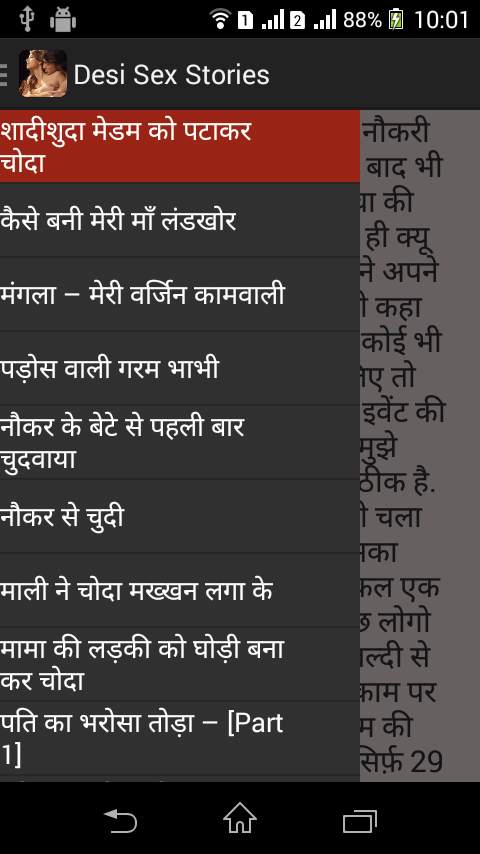 1 2 88% 10:01
Desi Sex Stories
शादीशुदा मेडम को पटाकर
चोदा
कैसे बनी मेरी माँ लंडखोर
मंगला – मेरी वर्जिन कामवाली
पड़ोस वाली गरम भाभी
नौकर के बेटे से पहली बार
चुदवाया
नौकर से चुदी
माली ने चोदा मख्खन लगा के
मामा की लड़की को घोड़ी बना
कर चोदा
पति का भरोसा तोड़ा – [Part
1]
नौकरी
बाद भी
की
ही क्यू
ने अपने
कहा
कोई भी
तो
इवेंट की
मुझे
ठीक है.
चला
एक
लोगो
से
काम पर
की
सिर्फ़ 29